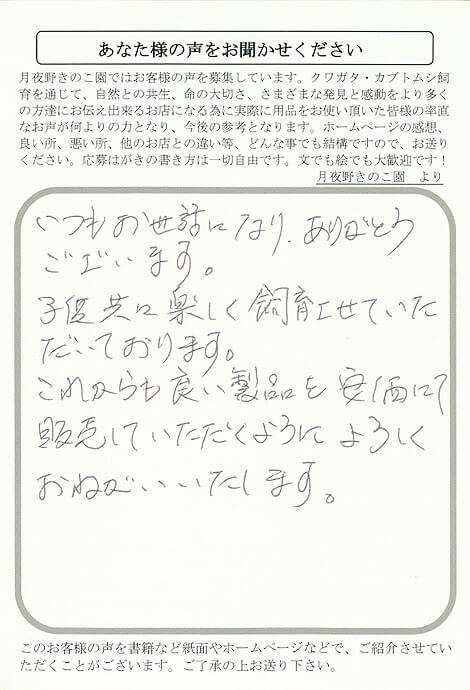 あなた様の声をお聞かせください
月夜野きのこ園ではお客様の声を募集しています。クワガタ・カブトムシ飼
育を通じて、自然との共生、命の大切さ、さまざまな発見と感動をより多く
の方達にお伝え出来るお店になる為に実際に用品をお使い頂いた皆様の率直
なお声が何よりの力となり、今後の参考となります。ホームページの感想、
良い所、悪い所、他のお店との違い等、どんな事でも結構ですので、お送り
ください。応募はがきの書き方は一切自由です。文でも絵でも大歓迎です！
月夜野きのこ園　より
いつもお世話になり、ありがとう
ございます。
子供共に楽しく飼育させていた
だいております。
これからも良い製品を安価にて
販売していただくようによろしく
おねがいいたします。
このお客様の声を書籍など紙面やホームページなどで、ご紹介させてい
ただくことがございます。ご了承の上お送り下さい。